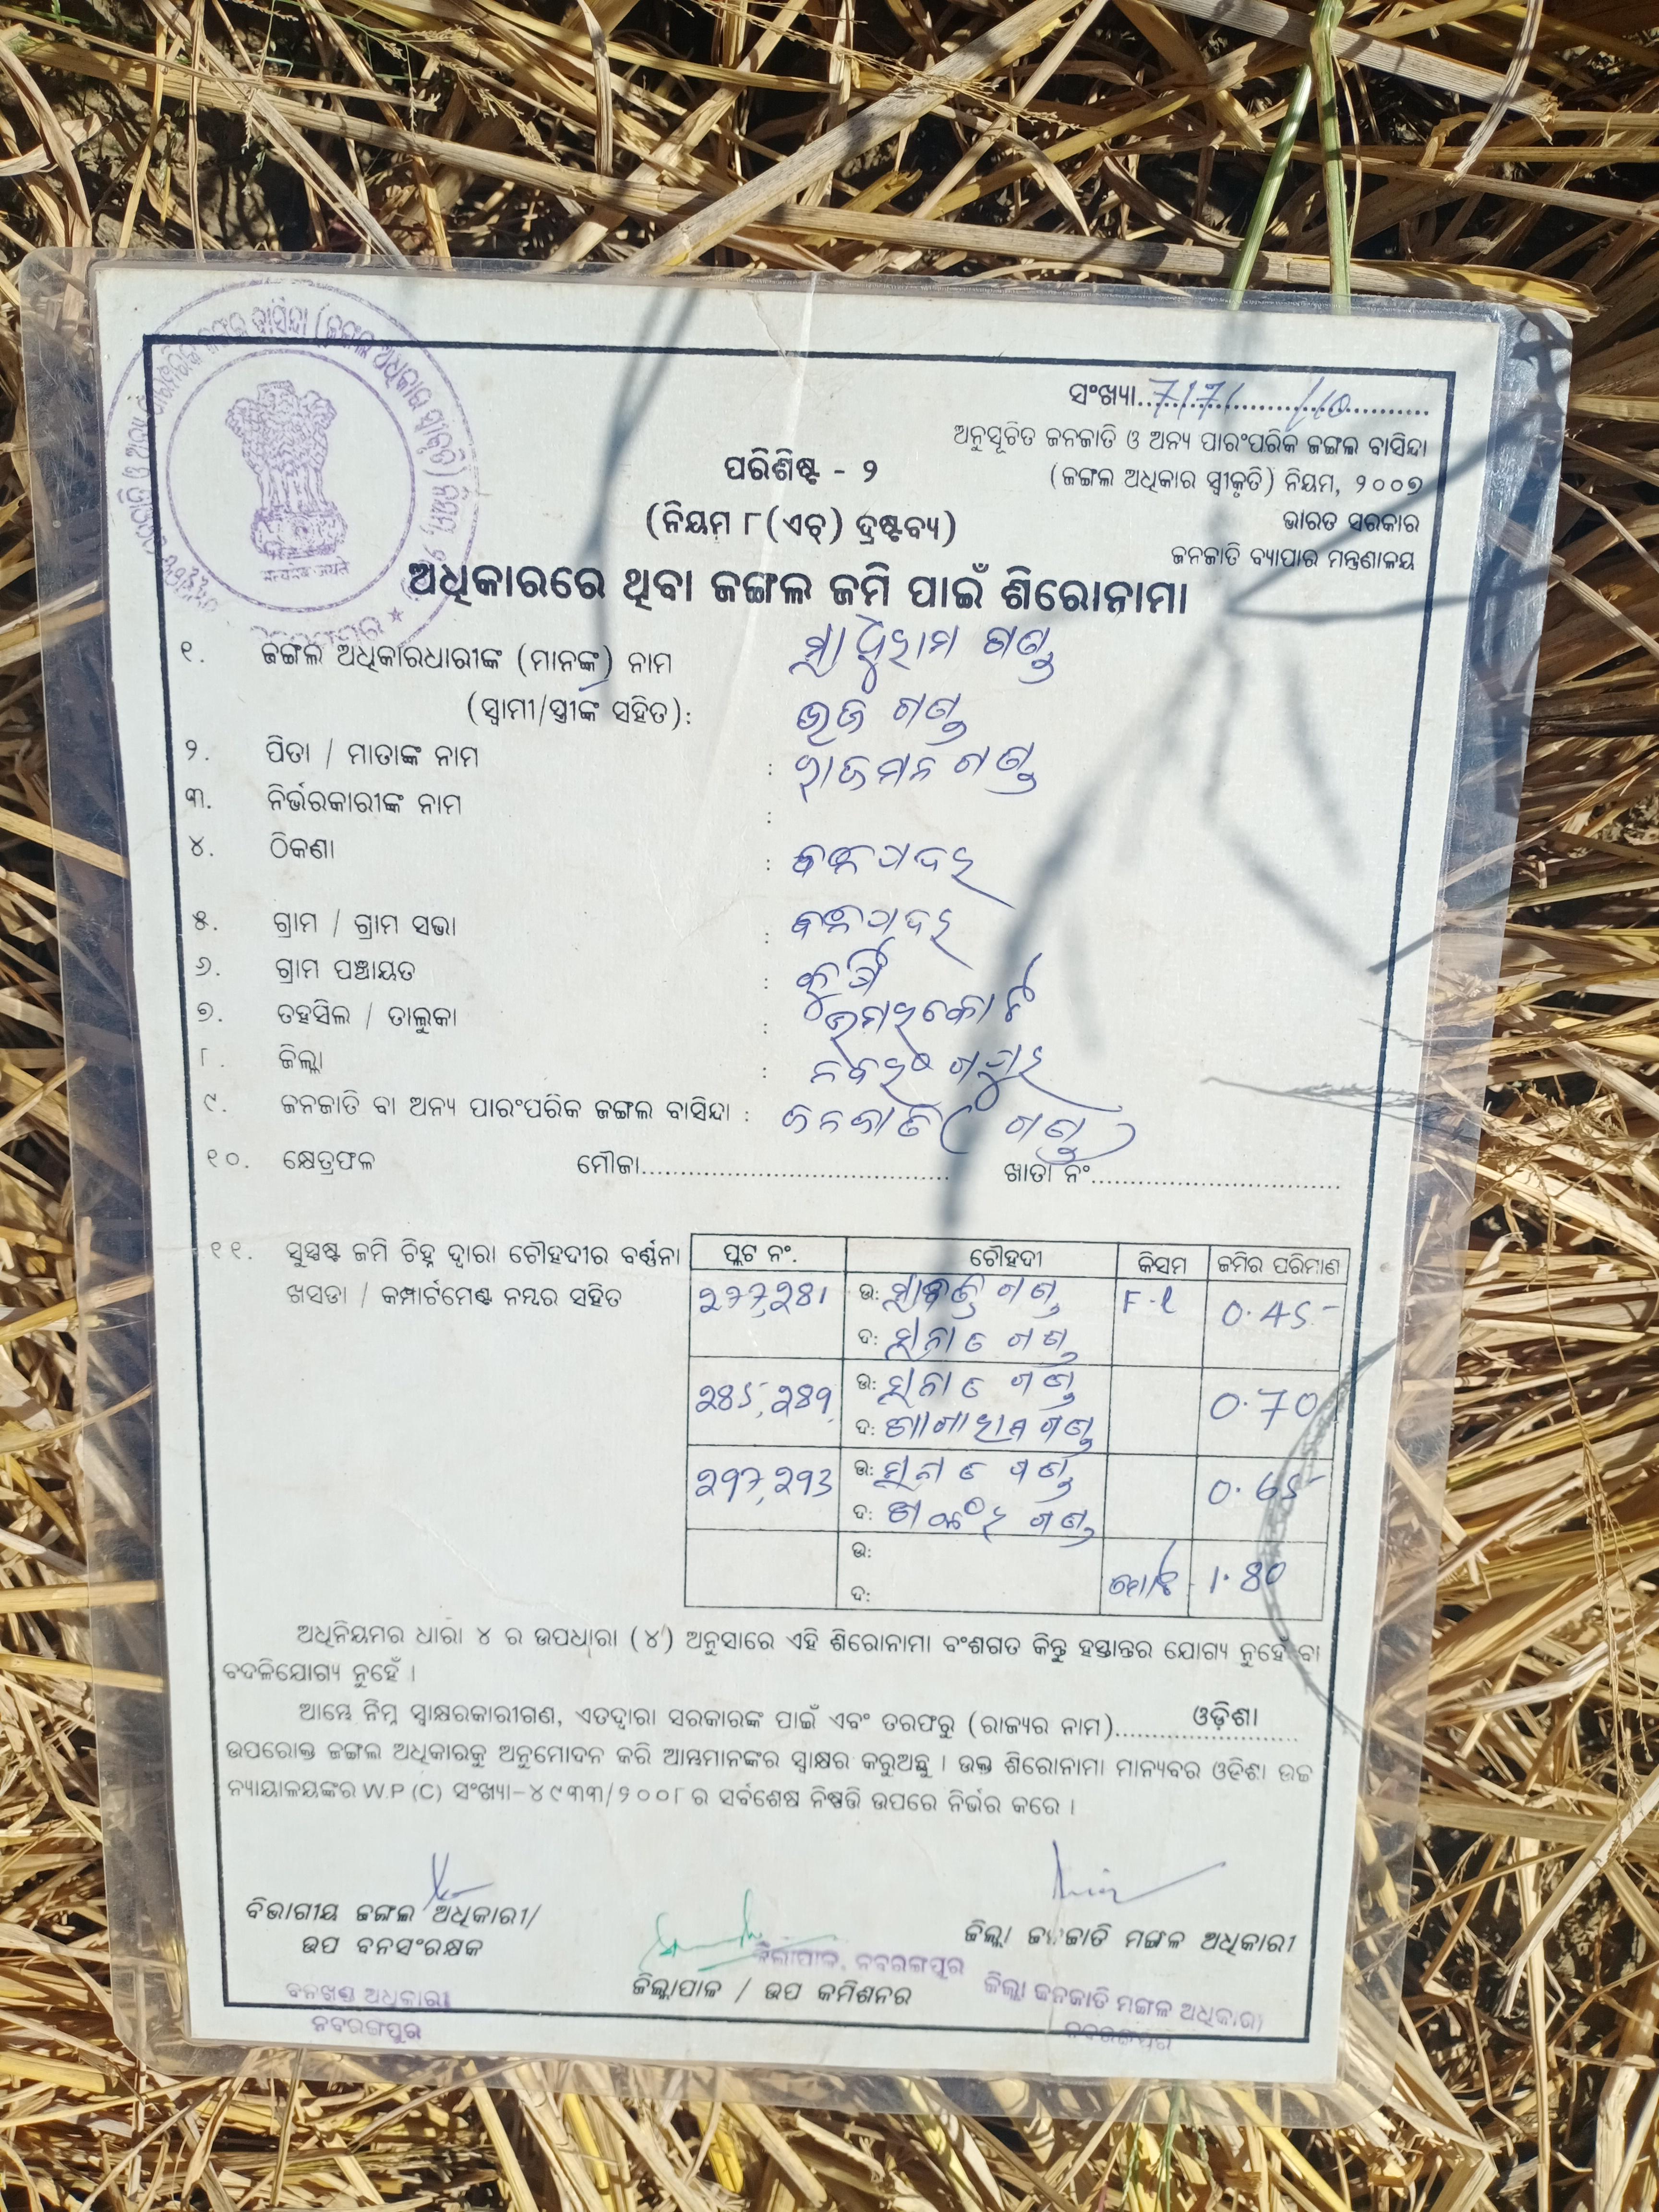 ସଂଖ୍ୟା 7171/10
ଅନୁସୂଚିତ ଜନଜାତି ଓ ଅନ୍ୟ ପାରଂପରିକ ଜଙ୍ଗଲ ବାସିନ୍ଦା
(ଜଙ୍ଗଲ ଅଧିକାର ସ୍ୱୀକୃତି) ନିୟମ, ୨୦୦୭
ଭାରତ ସରକାର
ଜନଜାତି ବ୍ୟାପାର ମନ୍ତ୍ରଣାଳୟ
ପରିଶିଷ୍ଟ - ୨
(ନିୟମ ୮(ଏଚ୍) ଦ୍ରଷ୍ଟବ୍ୟ)
ଅଧିକାରରେ ଥିବା ଜଙ୍ଗଲ ଜମି ପାଇଁ ଶିରୋନାମା
सत्यमेव जयते
୧. ଜଙ୍ଗଲ ଅଧିକାରଧାରୀଙ୍କ (ମାନଙ୍କ) ନାମ ଗଣ୍ଡ
(ସ୍ୱାମୀ/ସ୍ତ୍ରୀଙ୍କ ସହିତ): ଗଣ୍ଡ
୨. ପିତା / ମାତାଙ୍କ ନାମ : ରାଜମନ ଗଣ୍ଡ
୩. ନିର୍ଭରକାରୀଙ୍କ ନାମ :
୪. ଠିକଣା :
୫. ଗ୍ରାମ / ଗ୍ରାମ ସଭା :
୬. ଗ୍ରାମ ପଞ୍ଚାୟତ :
୭. ତହସିଲ / ତାଲୁକା : ଉମରକୋଟ
୮. ଜିଲ୍ଲା : ନବରଂଗପୁର
୯. ଜନଜାତି ବା ଅନ୍ୟ ପାରଂପରିକ ଜଙ୍ଗଲ ବାସିନ୍ଦା : ଜନଜାତି (ଗଣ୍ଡ)
୧୦. କ୍ଷେତ୍ରଫଳ ମୌଜା........................................ ଖାତା ନଂ................................
୧୧. ସୁସ୍ପଷ୍ଟ ଜମି ଚିହ୍ନ ଦ୍ୱାରା ଚୌହଦୀର ବର୍ଣ୍ଣନା
ଖସଡା / କମ୍ପାର୍ଟମେଣ୍ଟ ନମ୍ବର ସହିତ
ପ୍ଲଟ ନଂ. ଚୌହଦୀ କିସମ ଜମିର ପରିମାଣ
ଉ: ଗଣ୍ଡ 0.45
ଦ: ଗଣ୍ଡ
ଉ: ଗଣ୍ଡ 0.70
ଦ: ଗଣ୍ଡ
ଉ: ଗଣ୍ଡ 0.65
ଦ: ଗଣ୍ଡ
ଉ: ମୋଟ 1.80
ଦ:
ଅଧିନିୟମର ଧାରା ୪ ର ଉପଧାରା (୪) ଅନୁସାରେ ଏହି ଶିରୋନାମା ବଂଶଗତ କିନ୍ତୁ ହସ୍ତାନ୍ତର ଯୋଗ୍ୟ ନୁହେଁ ବା
ବଦଳିଯୋଗ୍ୟ ନୁହେଁ ।
ଆମ୍ଭେ ନିମ୍ନ ସ୍ୱାକ୍ଷରକାରୀଗଣ, ଏତଦ୍ୱାରା ସରକାରଙ୍କ ପାଇଁ ଏବଂ ତରଫରୁ (ରାଜ୍ୟର ନାମ).......... ଓଡ଼ିଶା
ଉପରୋକ୍ତ ଜଙ୍ଗଲ ଅଧିକାରକୁ ଅନୁମୋଦନ କରି ଆମ୍ଭମାନଙ୍କର ସ୍ୱାକ୍ଷର କରୁଅଛୁ । ଉକ୍ତ ଶିରୋନାମା ମାନ୍ୟବର ଓଡିଶା ଉଚ୍ଚ
ନ୍ୟାୟାଳୟଙ୍କର W.P (C) ସଂଖ୍ୟା-୪୯୩୩/୨୦୦୮ ର ସର୍ବଶେଷ ନିଷ୍ପତ୍ତି ଉପରେ ନିର୍ଭର କରେ ।
ବିଭାଗୀୟ ଜଙ୍ଗଲ ଅଧିକାରୀ/
ଉପ ବନସଂରକ୍ଷକ
ବନଖଣ୍ଡ ଅଧିକାରୀ
ନବରଙ୍ଗପୁର
ଜିଲ୍ଲାପାଳ, ନବରଙ୍ଗପୁର
ଜିଲ୍ଲାପାଳ / ଉପ କମିଶନର
ଜିଲ୍ଲା ଜନଜାତି ମଙ୍ଗଳ ଅଧିକାରୀ
ଜିଲ୍ଲା ଜନଜାତି ମଙ୍ଗଳ ଅଧିକାରୀ
ନବରଙ୍ଗପୁର